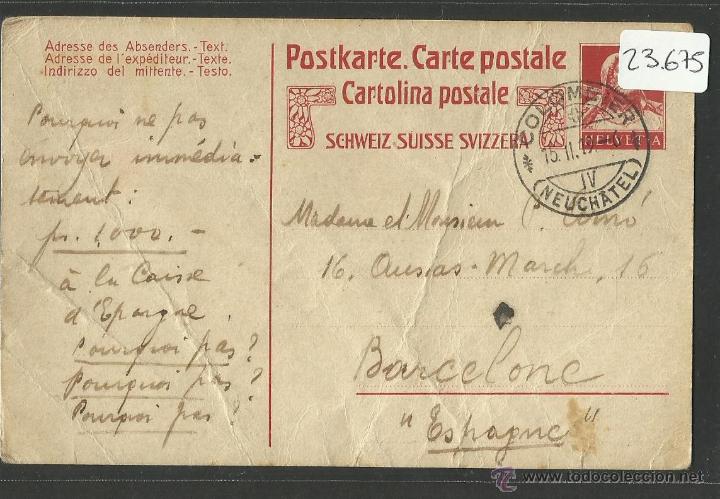 Adresse des Absenders.-Text.
Adresse de l'expéditeur.-Texte.
Indirizzo del mittente.-Testo.
Postkarte. Carte postale
Cartolina postale
SCHWEIZ SUISSE SVIZZERA
23.675
HELVETIA
COLOMBIER
15. II. 19
IV
(NEUCHÂTEL)
Pourquoi ne pas
envoyer immédia-
tement:
fr. 1,000.-
à la Caisse
d'Epargne.
Pourquoi pas?
Pourquoi pas?
Pourquoi pas?
Madame et Monsieur
16. Ausias-March, 16
Barcelone
"Espagne"
todocoleccion.net